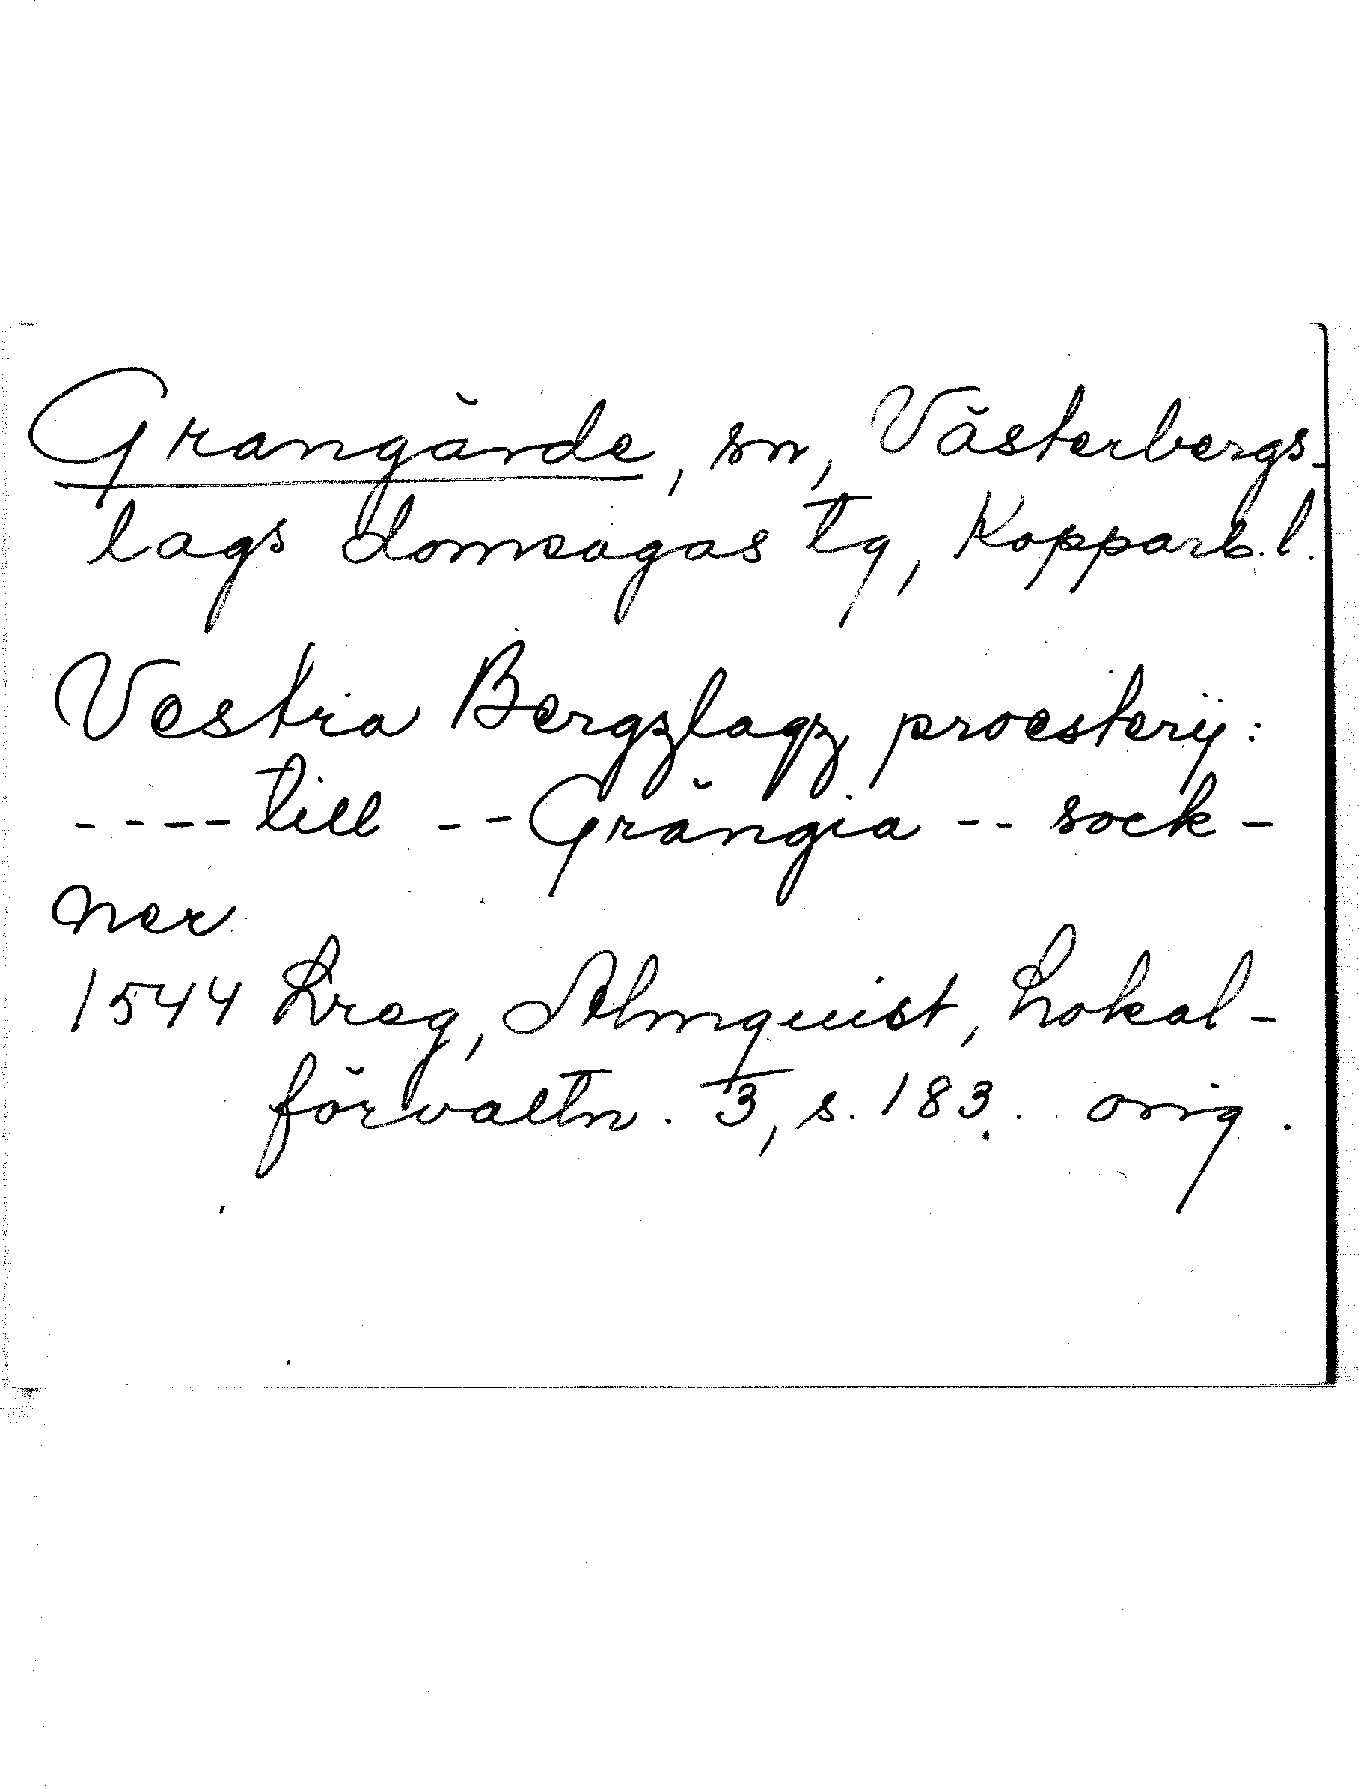 Grangärde, sn, Västerbergs-
lags domsagas tg, Kopparb. l.
Vestra Bergzlagz proesterij:
---- till -- Grängia -- sock-
ner
1544 Lreg, Almquist, Lokal-
förvaltn. 3, s. 183. orig.